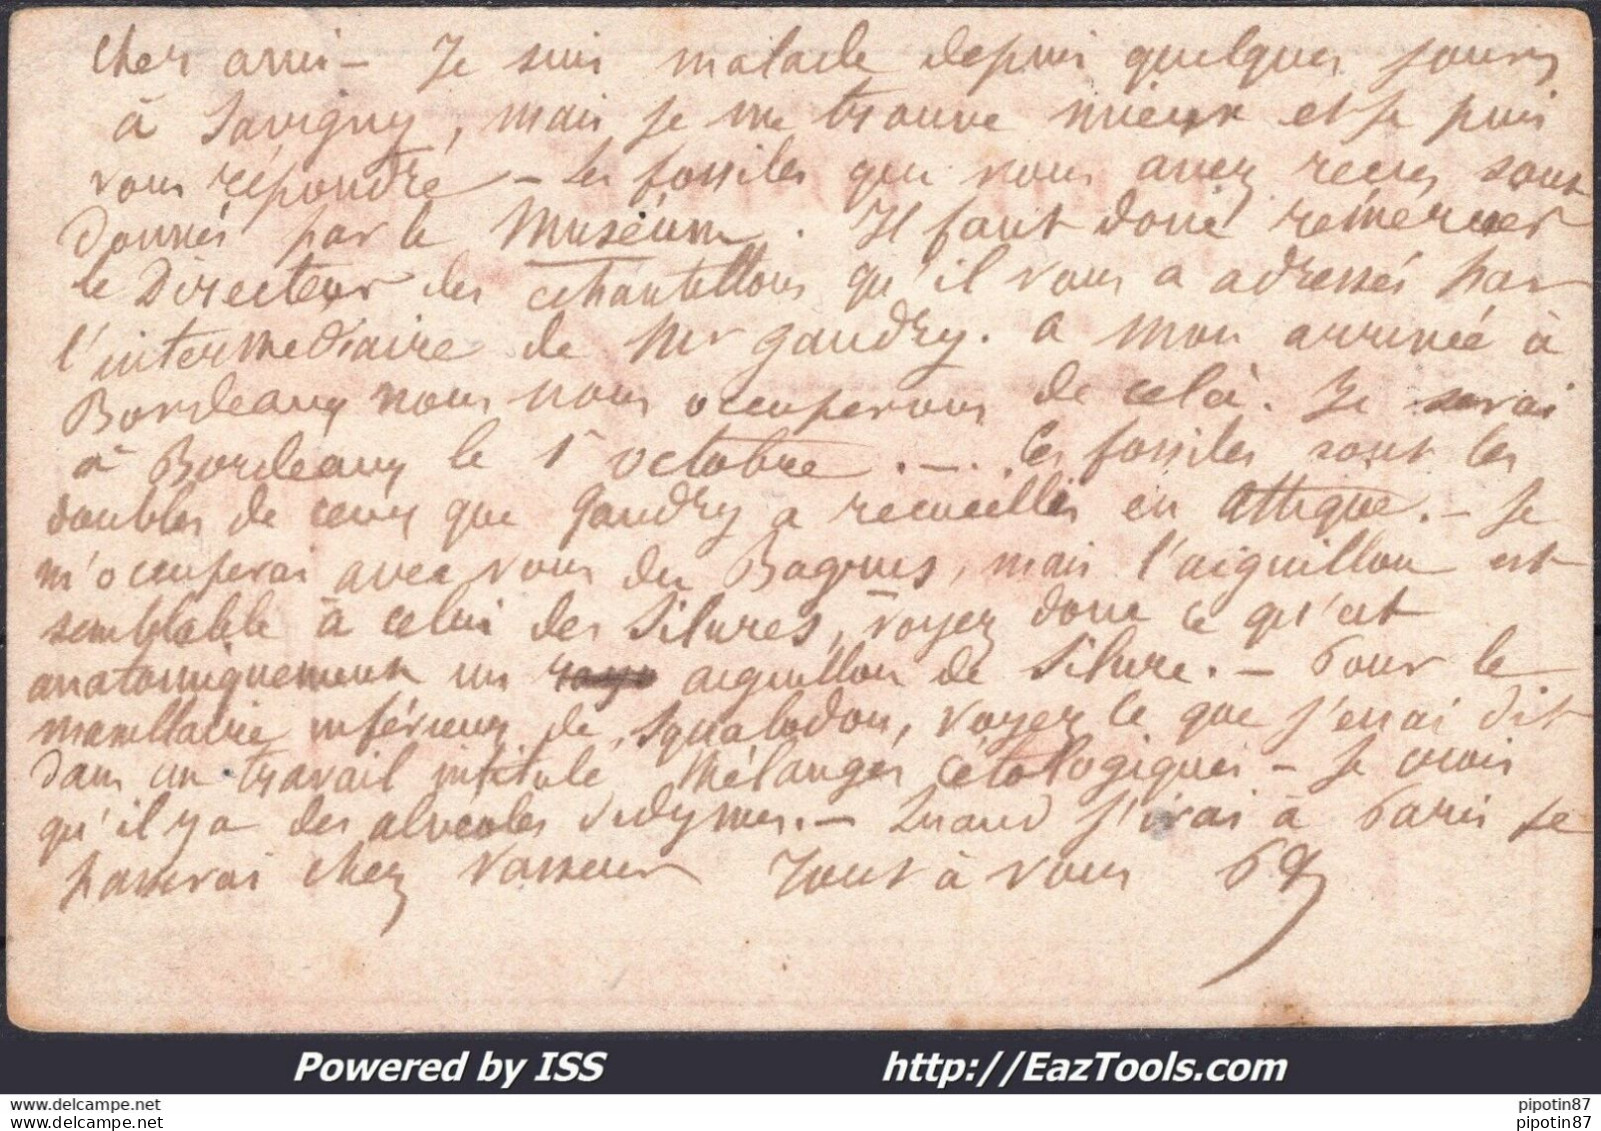 Cher ami – Je suis malade depuis quelques jours
à Savigny, mais je me trouve mieux et je puis
vous répondre – Les fossiles que vous avez reçus sont
donnés par le Muséum. Il faut donc remercier
le Directeur des échantillons qu'il vous a adressés par
l'intermédiaire de Mr Gaudry. a mon arrivée à
Bordeaux nous nous occuperons de celà. Je serai
à Bordeaux le 1r octobre . – . Ces fossiles sont les
doubles de ceux que Gaudry a recueillis en Attique. – Je
m'occuperai avec vous du Bagrus, mais l'aiguillon est
semblable à celui des Silures, voyez donc ce qu'est
anatomiquement un aiguillon de Silure. – Pour le
maxillaire inférieur de Squalodon, voyez ce que j'en ai dit
dans un travail intitulé Mélanges Cétologiques – Je crois
qu'il y a des alvéoles didymes. – Quand j'irai à Paris je
passerai chez Vasseur Tout à vous
Powered by ISS http://EazTools.com
www.delcampe.net pipotin87
www.delcampe.net pipotin87